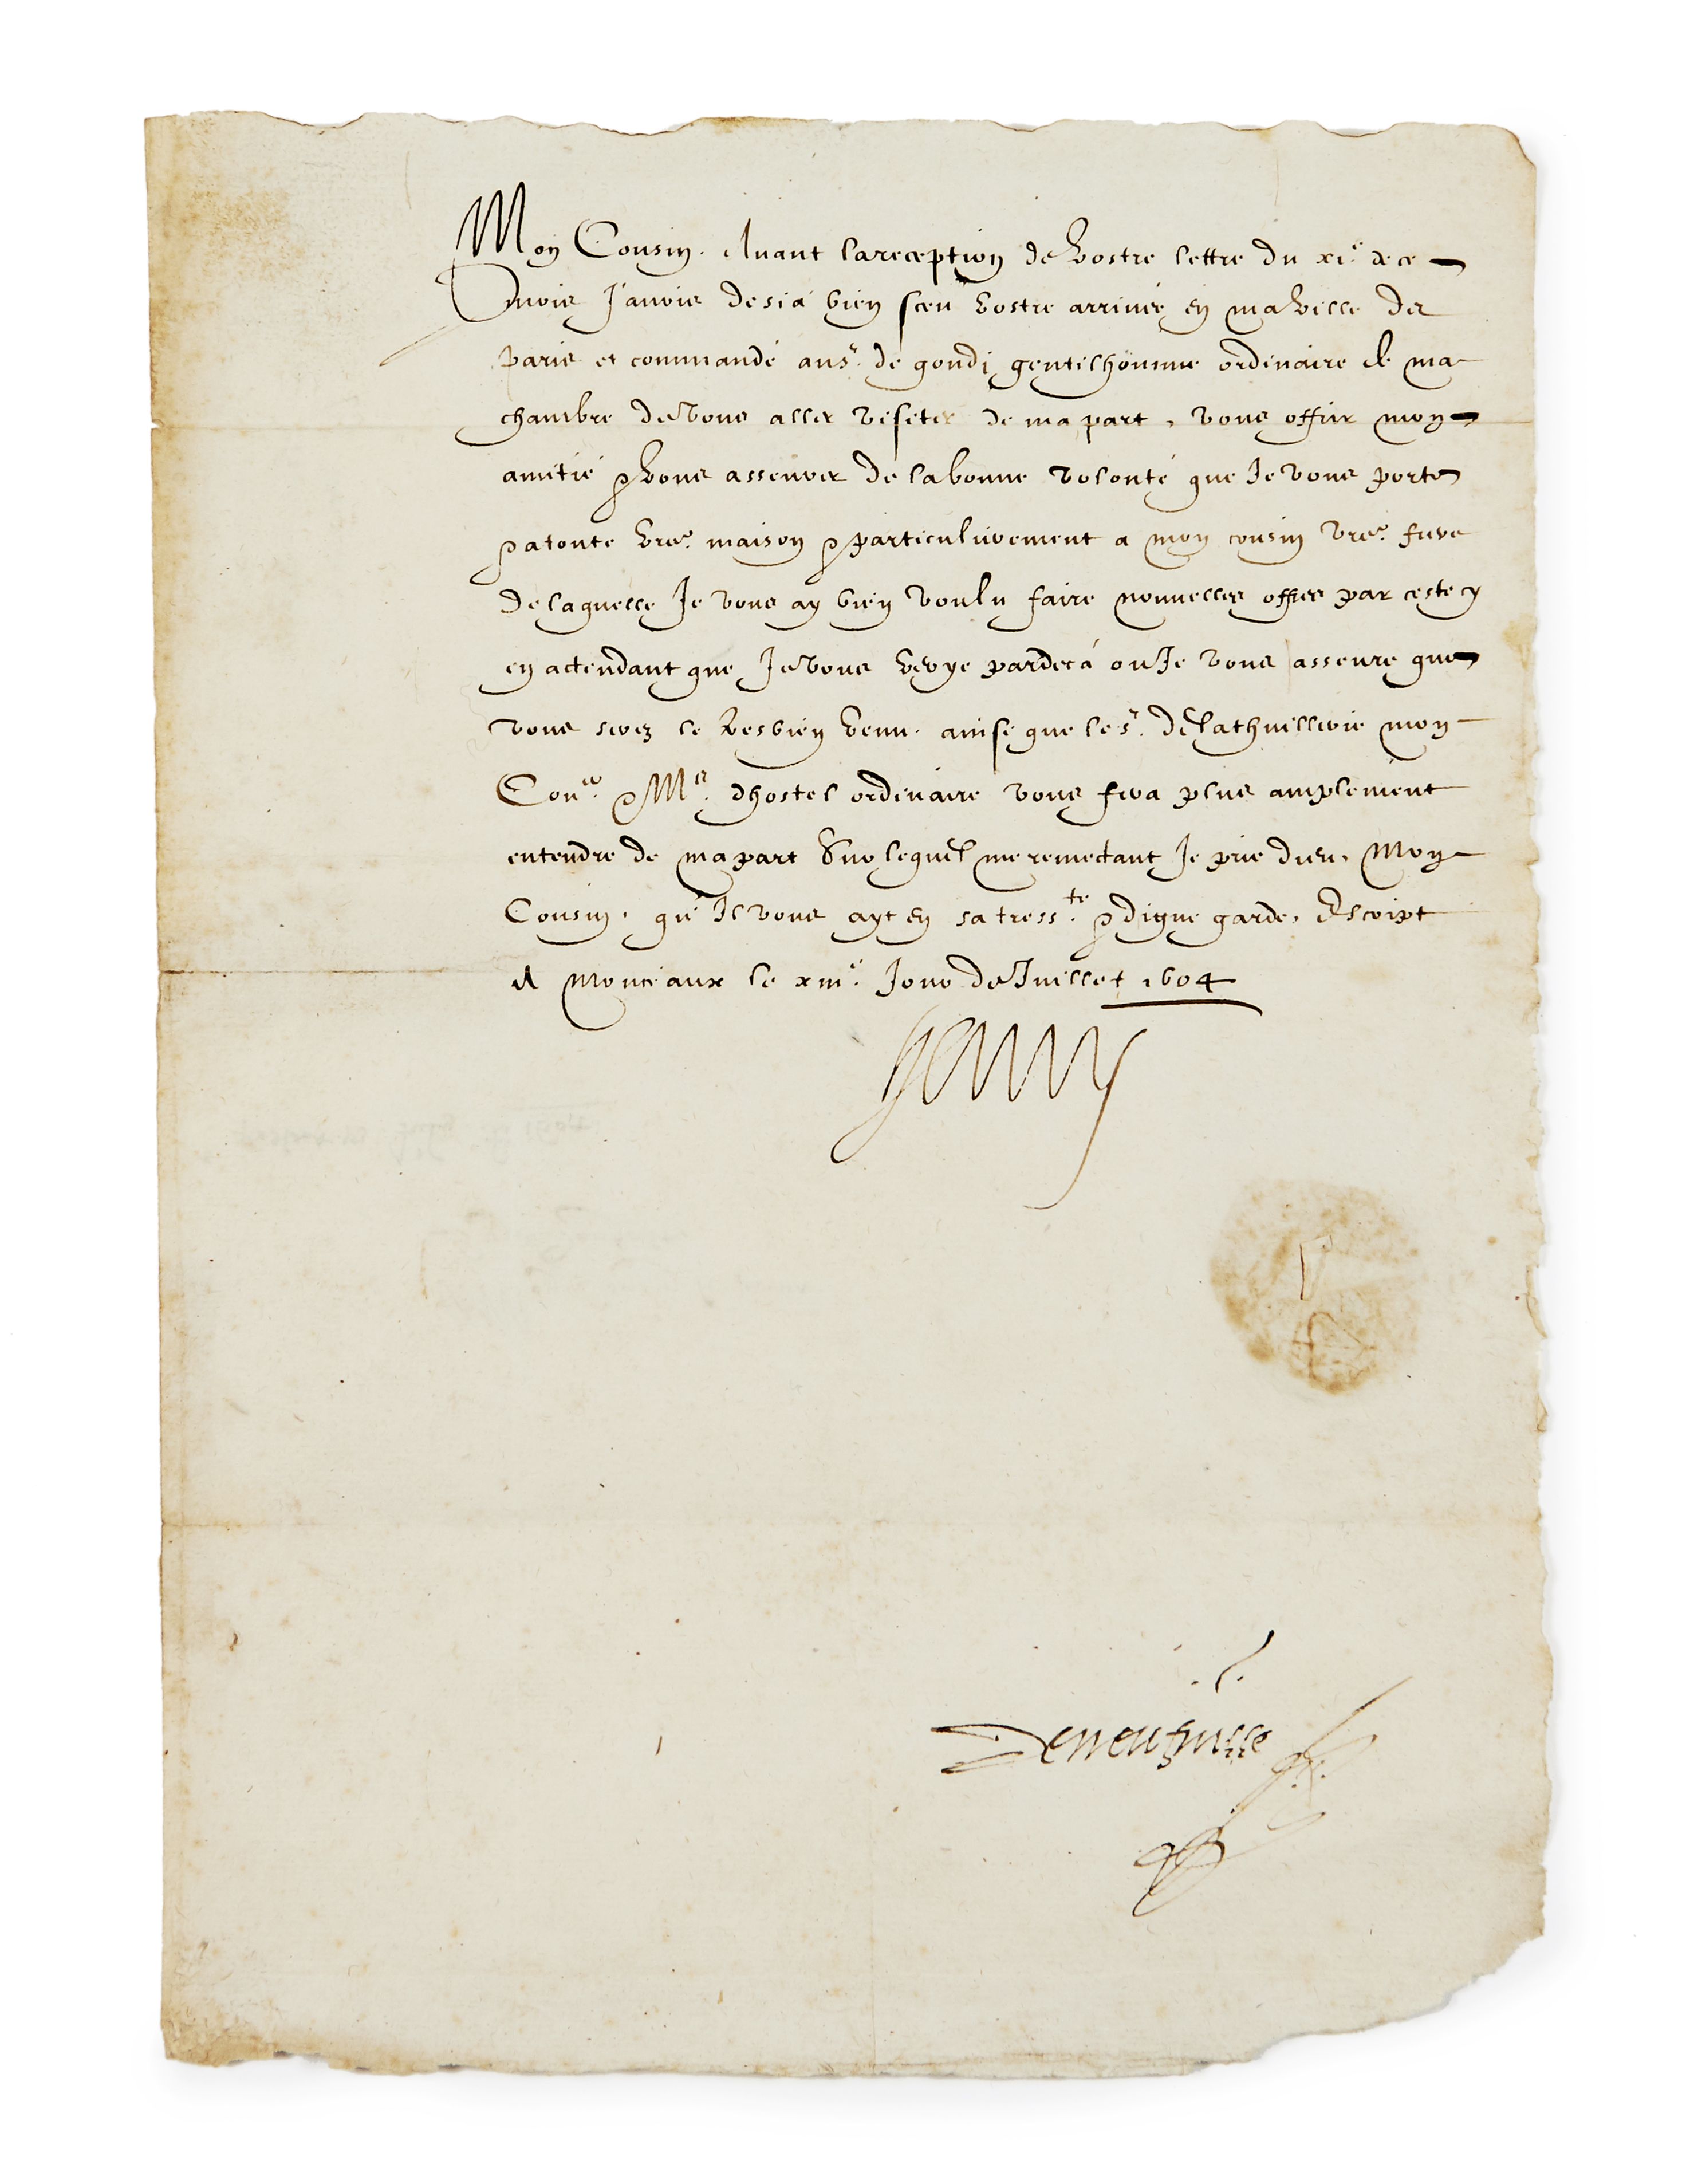 Mon Cousin. Avant la reception de vostre lettre du xie. de ce
mois J'avois desia bien sceu vostre arrivée en ma ville de
Paris et commandé au sr. de gondi gentilhomme ordinaire de ma
chambre de vous aller visiter de ma part, vous offrir mon
amitié & vous asseurer de la bonne volonté que Je vous porte
& a toute vre. maison & particulierement a mon cousin vre. frere
de laquelle Je vous ay bien voulu faire nouvelles offres par ceste cy
en actendant que Je vous voye pardeçà ou Je vous asseure que
vous serez le tresbien venu. ainsi que le sr. de la thuillerie mon
Coner. & Me. dhostel ordinaire vous fera plus amplement
entendre de ma part Sur lequel me remectant Je prie dieu, Mon
Cousin, qu'Il vous ayt en sa tresste. & digne garde, Escript
A Monceaux le xiiie. Jour de Juillet 1604
Henry
Deneufville